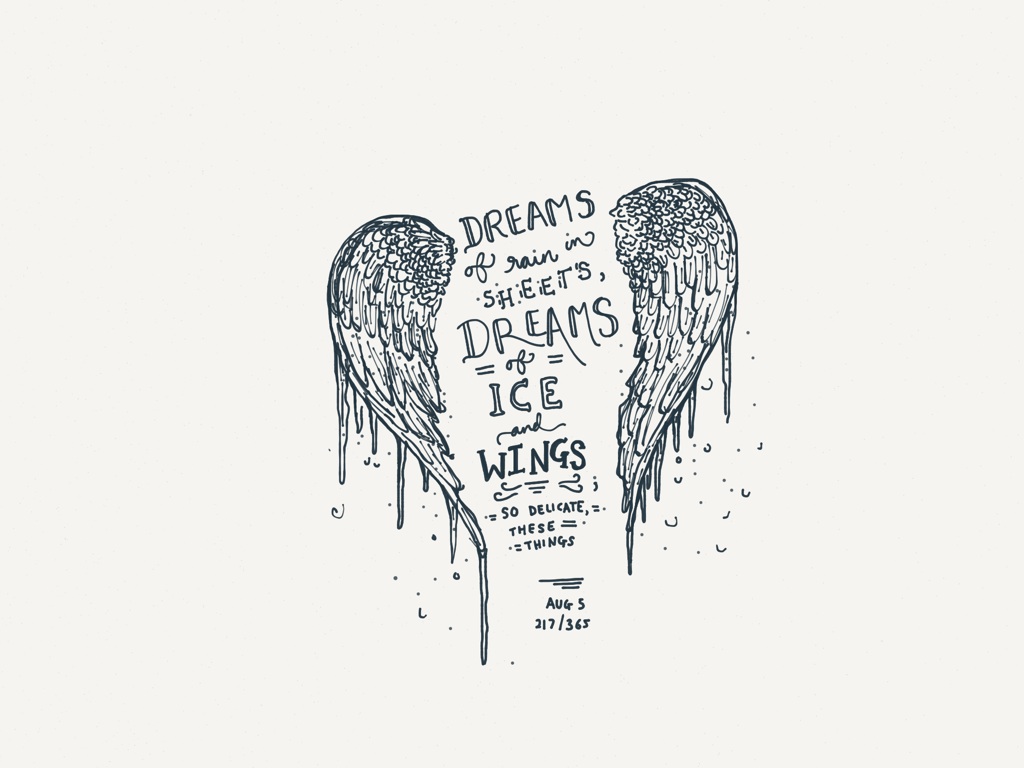 DREAMS
of rain in
SHEET'S,
DREAMS
of
ICE
and
WINGS
;
SO DELICATE,
THESE
THINGS
AUG 5
217/365